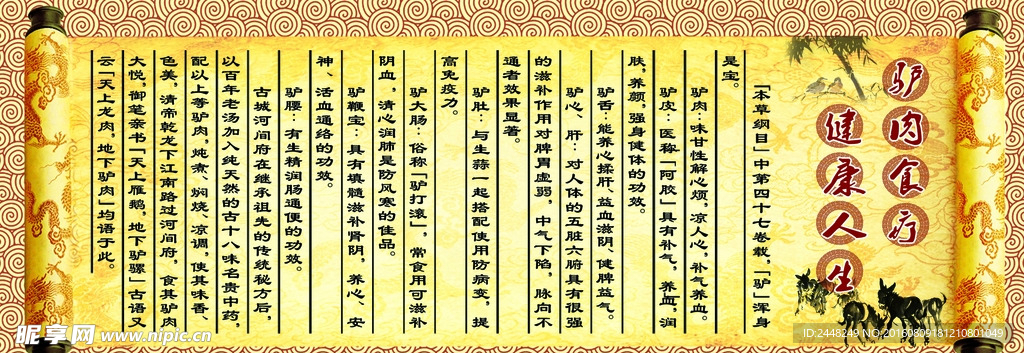 驴肉食疗
健康人生
《本草纲目》中第四十七卷载，「驴」浑身
是宝。
驴肉：味甘性解心烦，凉人心，补气养血。
驴皮：医称「阿胶」具有补气，养血，润
肤，养颜，强身健体的功效。
驴舌：能养心揉肝、益血滋阴、健脾益气。
驴心、肝：对人体的五脏六腑具有很强
的滋补作用对脾胃虚弱，中气下陷，脉向不
通者效果显著。
驴肚：与生蒜一起搭配使用防病变，提
高免疫力。
驴大肠：俗称「驴打滚」，常食用可滋补
阴血，清心润肺是防风寒的佳品。
驴鞭宝：具有填髓滋补肾阴，养心、安
神、活血通络的功效。
驴腰：有生精润肠通便的功效。
古城河间府在继承祖先的传统秘方后，
以百年老汤加入纯天然的古十八味名贵中药，
配以上等驴肉，炖煮、焖烧、凉调，使其味香、
色美，清帝乾龙下江南路过河间府，食其驴肉
大悦，御笔亲书「天上雁鹅，地下驴骡」古语又
云「天上龙肉，地下驴肉」均语于此。
昵享网 www.nipic.cn
ID:2448249 NO:20160809181210801049